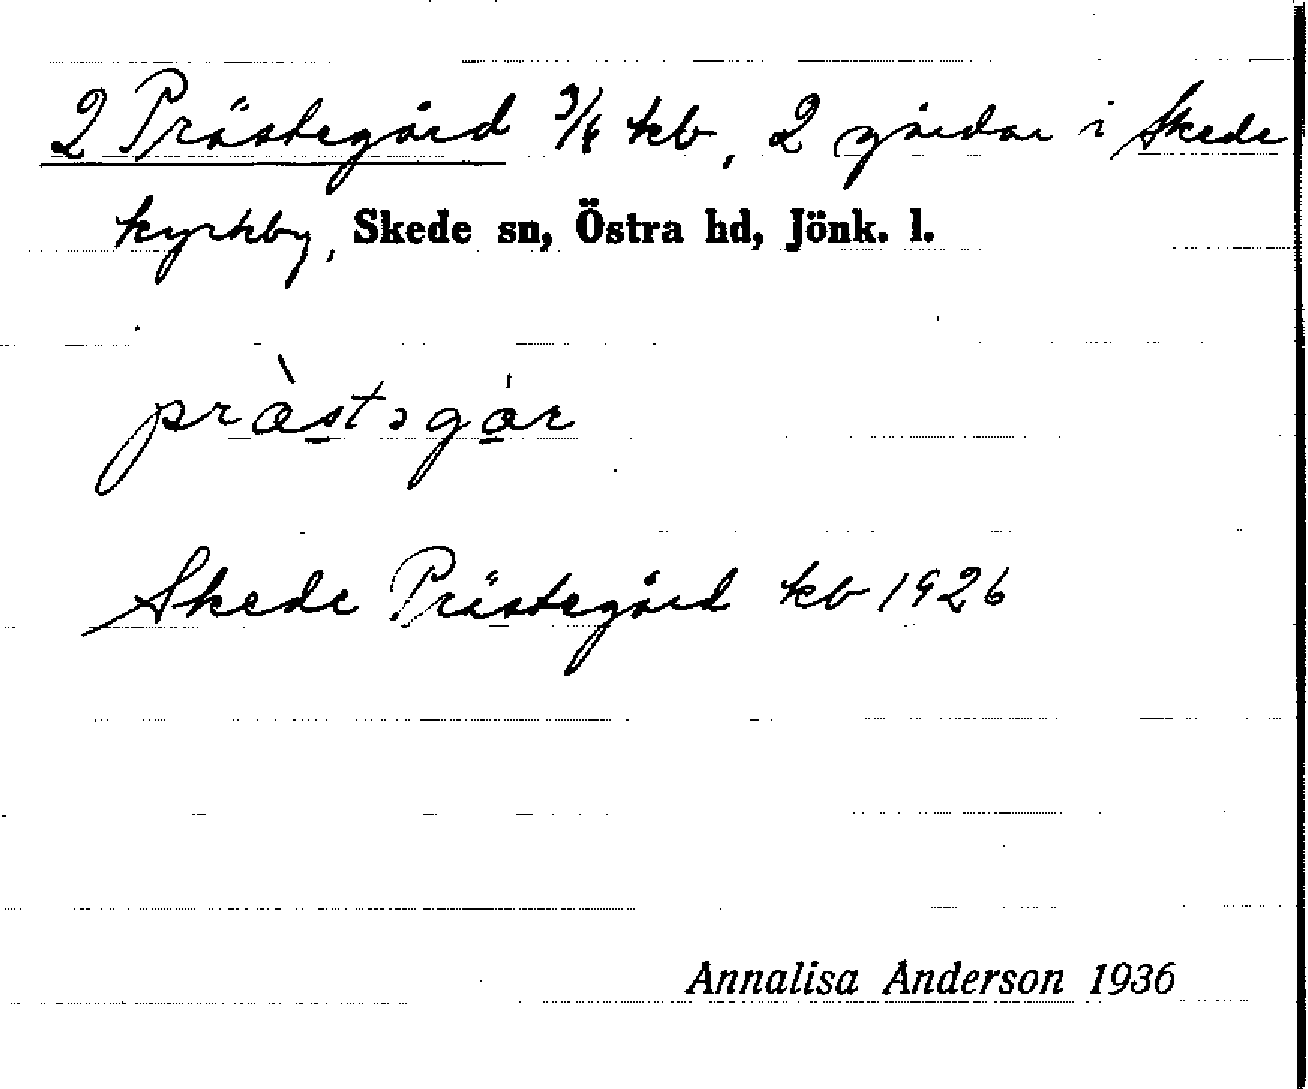 2 Prästegård 3/8 kb, 2 gårdar i Skede
kyrkby, Skede sn, Östra hd, Jönk. l.
præ̀stəgár
Skede Prästegård kb 1926
Annalisa Anderson 1936